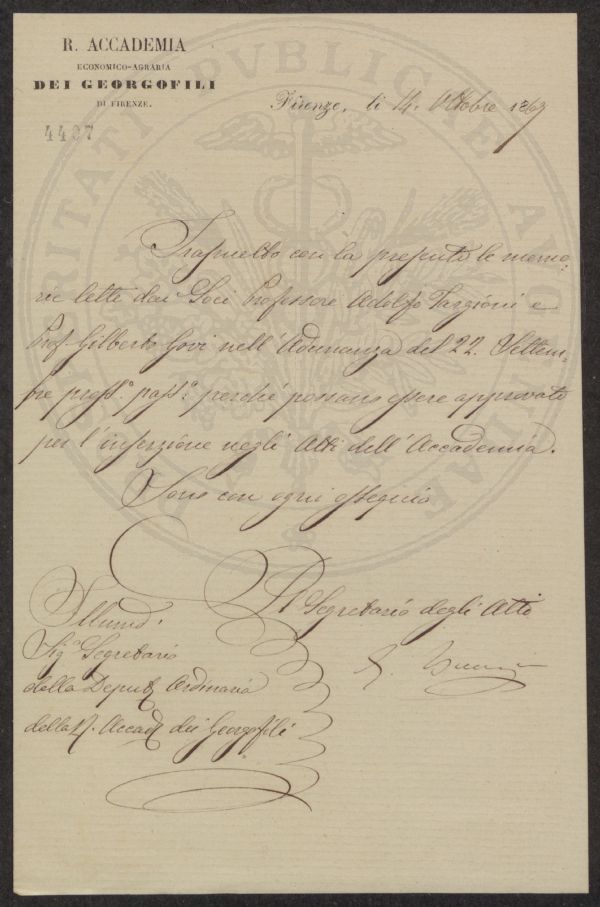 R. ACCADEMIA
ECONOMICO-AGRARIA
DEI GEORGOFILI
DI FIRENZE.
4407
Firenze, li 14. Ottobre 1869
Trasmetto con la presente le memo-
rie lette dai Soci Professore Adolfo Targioni e
Prof. Gilberto Govi nell'Adunanza del 22. Settem-
bre pross.o pass.o perché possano essere approvate
per l'inserzione negli Atti dell'Accademia.
Sono con ogni ossequio
Il Segretario degli Atti
Illmo
Sig.r Segretario
della Deput. Ordinaria
della R. Accad. dei Georgofili
PROSPERITATI PUBLICAE